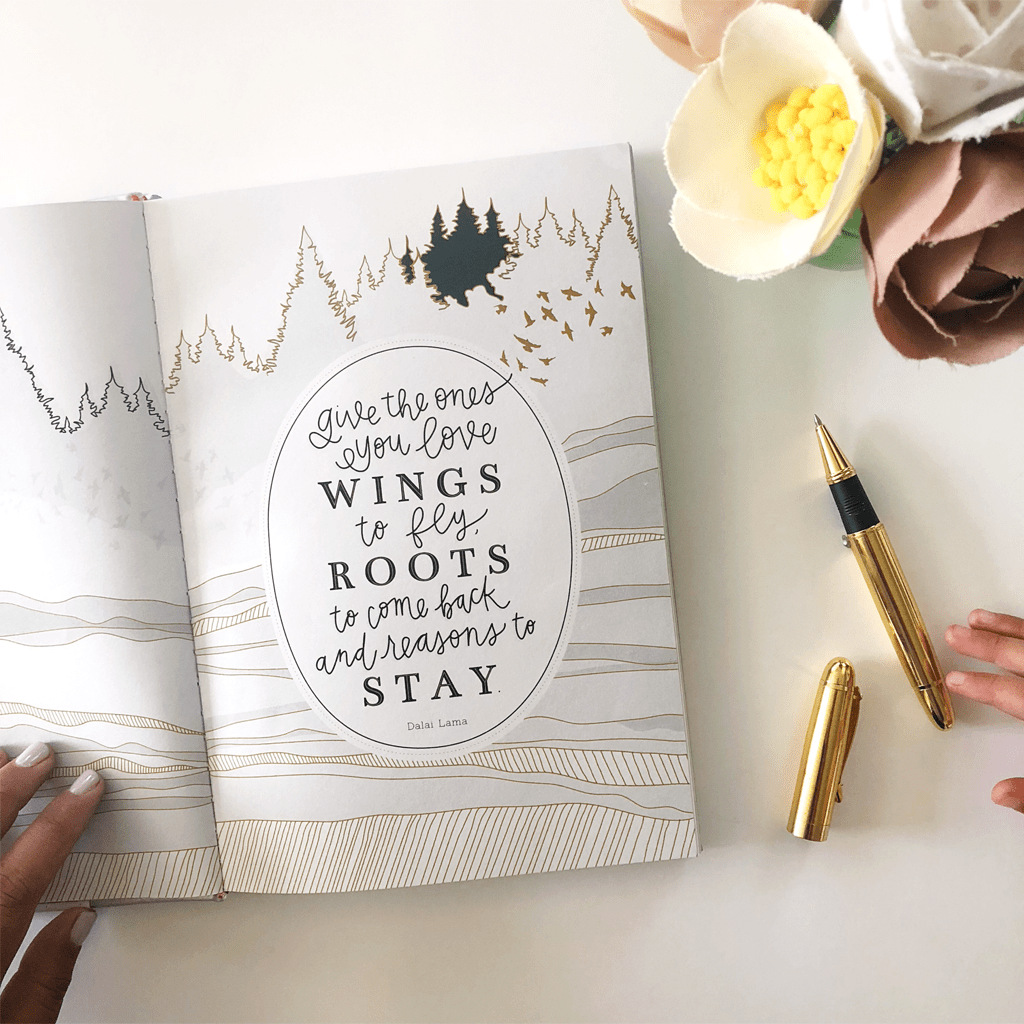 give the ones
you love
WINGS
to fly,
ROOTS
to come back
and reasons to
STAY.
Dalai Lama